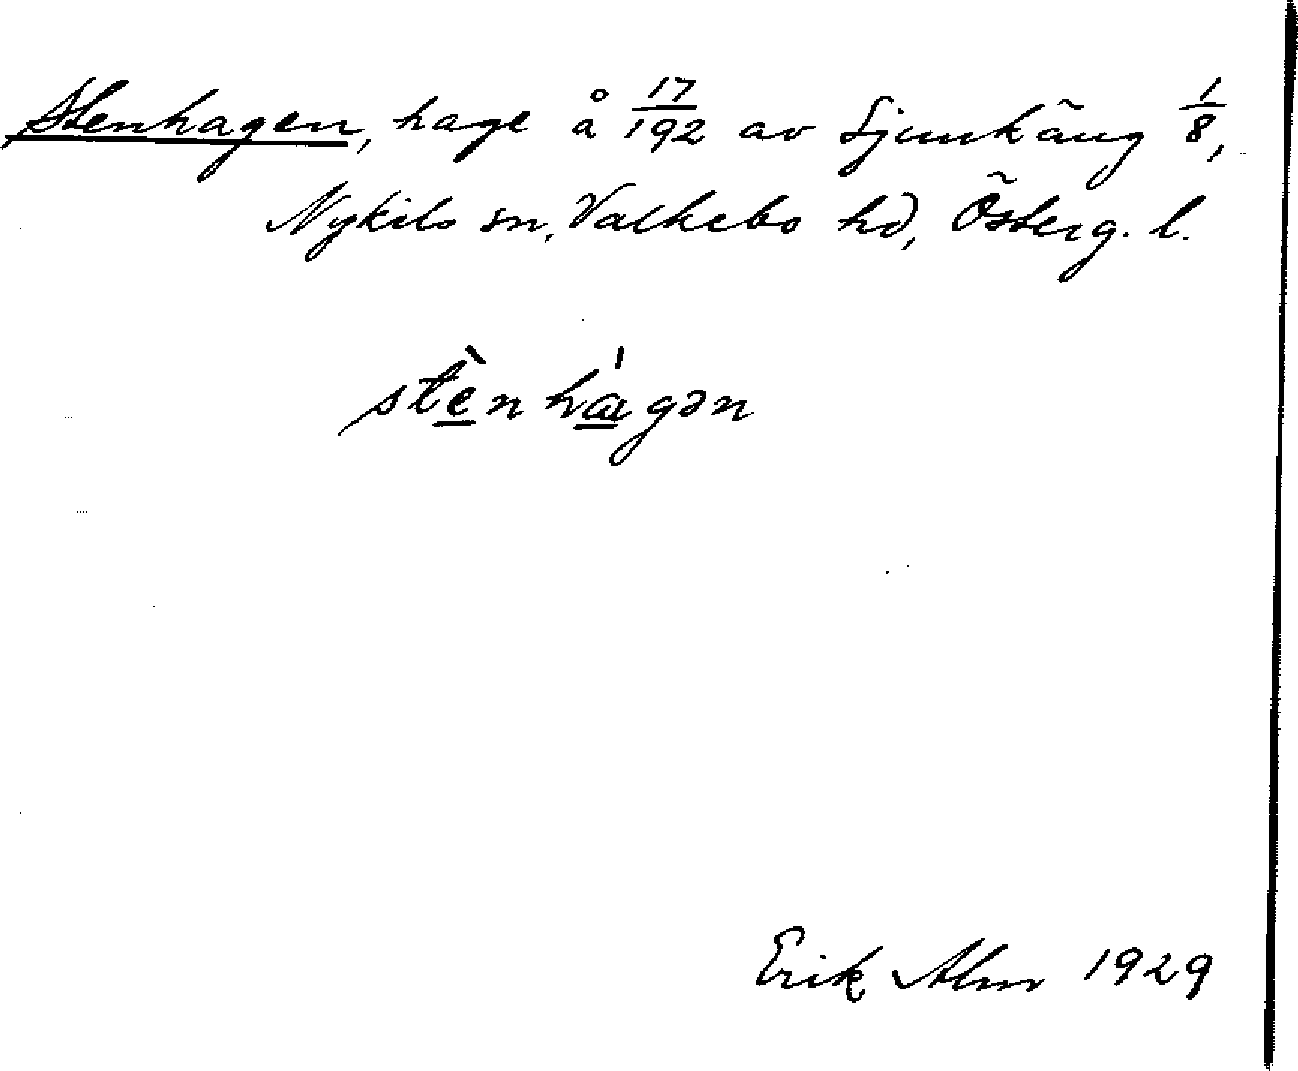 Stenhagen, hage å 17/192 av Sjunkäng 1/8,
Nykils sn, Valkebo hd, Österg. l.
stè̱nhá̱gən
Erik Alm 1929